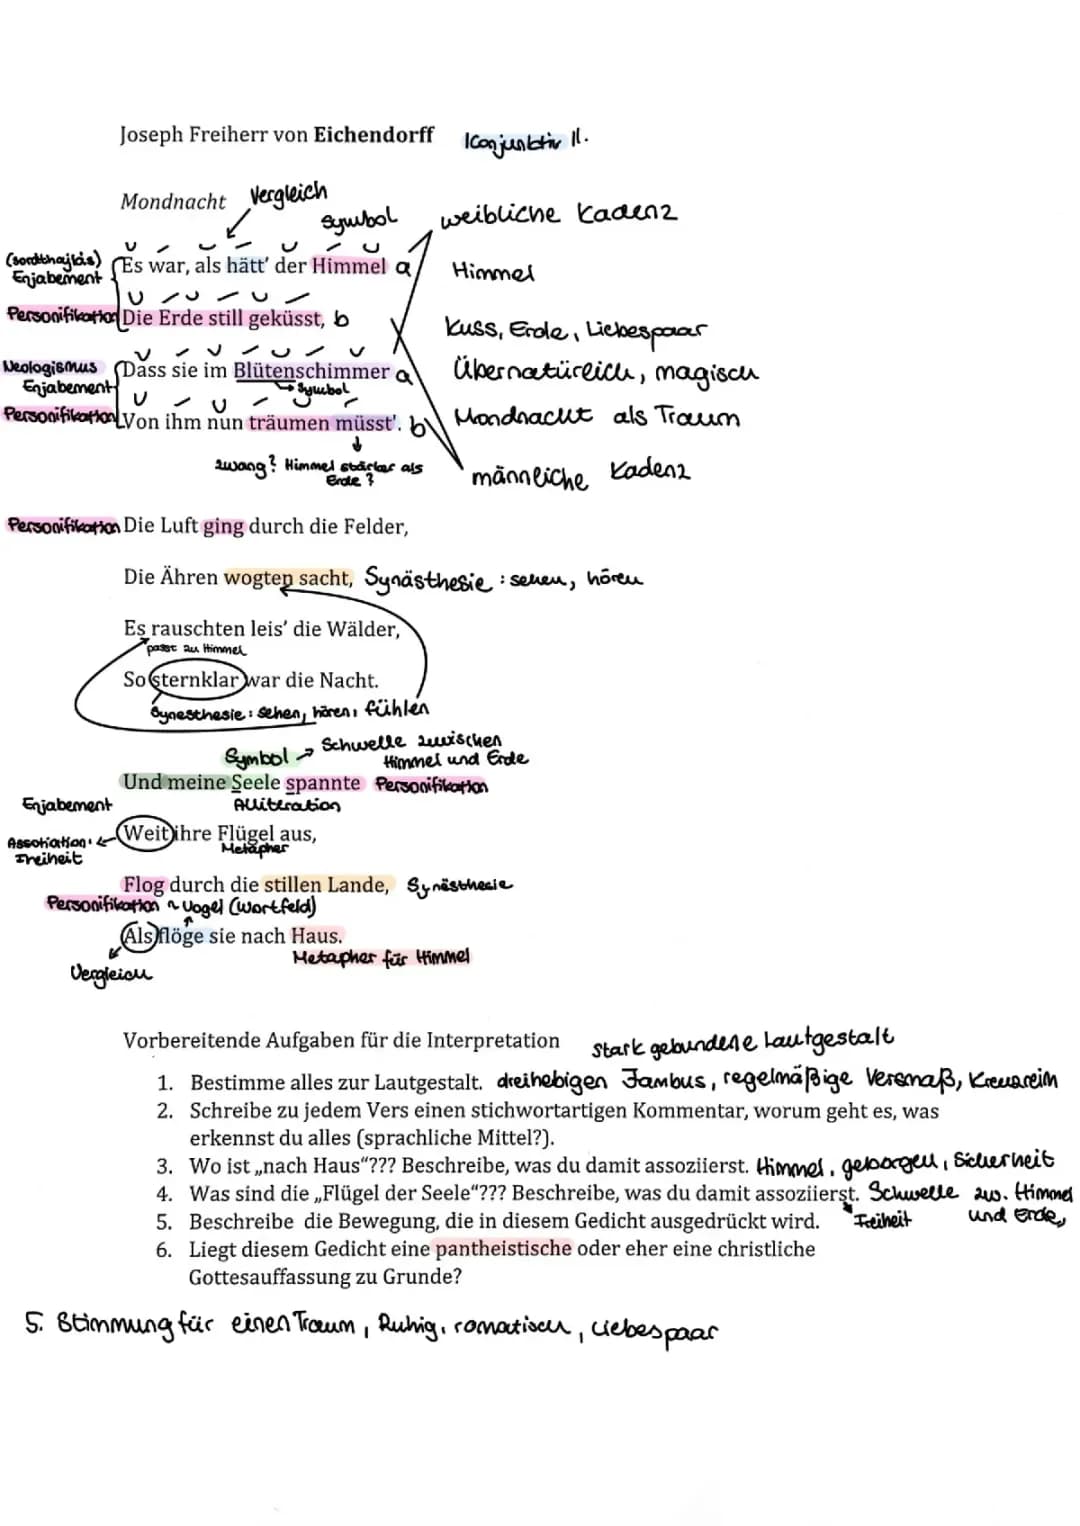 Joseph Freiherr von Eichendorff Konjunktiv II.
Mondnacht Vergleich
Symbol weibliche Kadenz
(sordthajlás)
Enjabement Es war, als hätt' der Himmel a Himmel
Personifikation Die Erde still geküsst, b Kuss, Erde, Liebespaar
Neologismus Dass sie im Blütenschimmer a Übernatürlich, magisch
Enjabement → Symbol
Personifikation Von ihm nun träumen müsst'. b Mondnacht als Traum
zwang? Himmel stärker als Erde? männliche Kadenz
Personifikation Die Luft ging durch die Felder,
Die Ähren wogten sacht, Synästhesie : sehen, hören
Es rauschten leis' die Wälder,
passt zu Himmel
So sternklar war die Nacht.
Synesthesie : sehen, hören, fühlen
Symbol → Schwelle zwischen Himmel und Erde
Und meine Seele spannte Personifikation
Enjabement Alliteration
Assotiation: Freiheit Weit ihre Flügel aus,
Metapher
Flog durch die stillen Lande, Synästhesie
Personifikation ~ Vogel (Wortfeld)
Als flöge sie nach Haus.
Metapher für Himmel
Vergleich
Vorbereitende Aufgaben für die Interpretation stark gebundene Lautgestalt
1. Bestimme alles zur Lautgestalt. dreihebigen Jambus, regelmäßige Versmaß, Kreuzreim
2. Schreibe zu jedem Vers einen stichwortartigen Kommentar, worum geht es, was
erkennst du alles (sprachliche Mittel?).
3. Wo ist „nach Haus"??? Beschreibe, was du damit assoziierst. Himmel, geborgen, Sicherheit
4. Was sind die „Flügel der Seele"??? Beschreibe, was du damit assoziierst. Schwelle zw. Himmel und Erde,
5. Beschreibe die Bewegung, die in diesem Gedicht ausgedrückt wird. Freiheit
6. Liegt diesem Gedicht eine pantheistische oder eher eine christliche
Gottesauffassung zu Grunde?
5. Stimmung für einen Traum, Ruhig, romatisch, Liebespaar